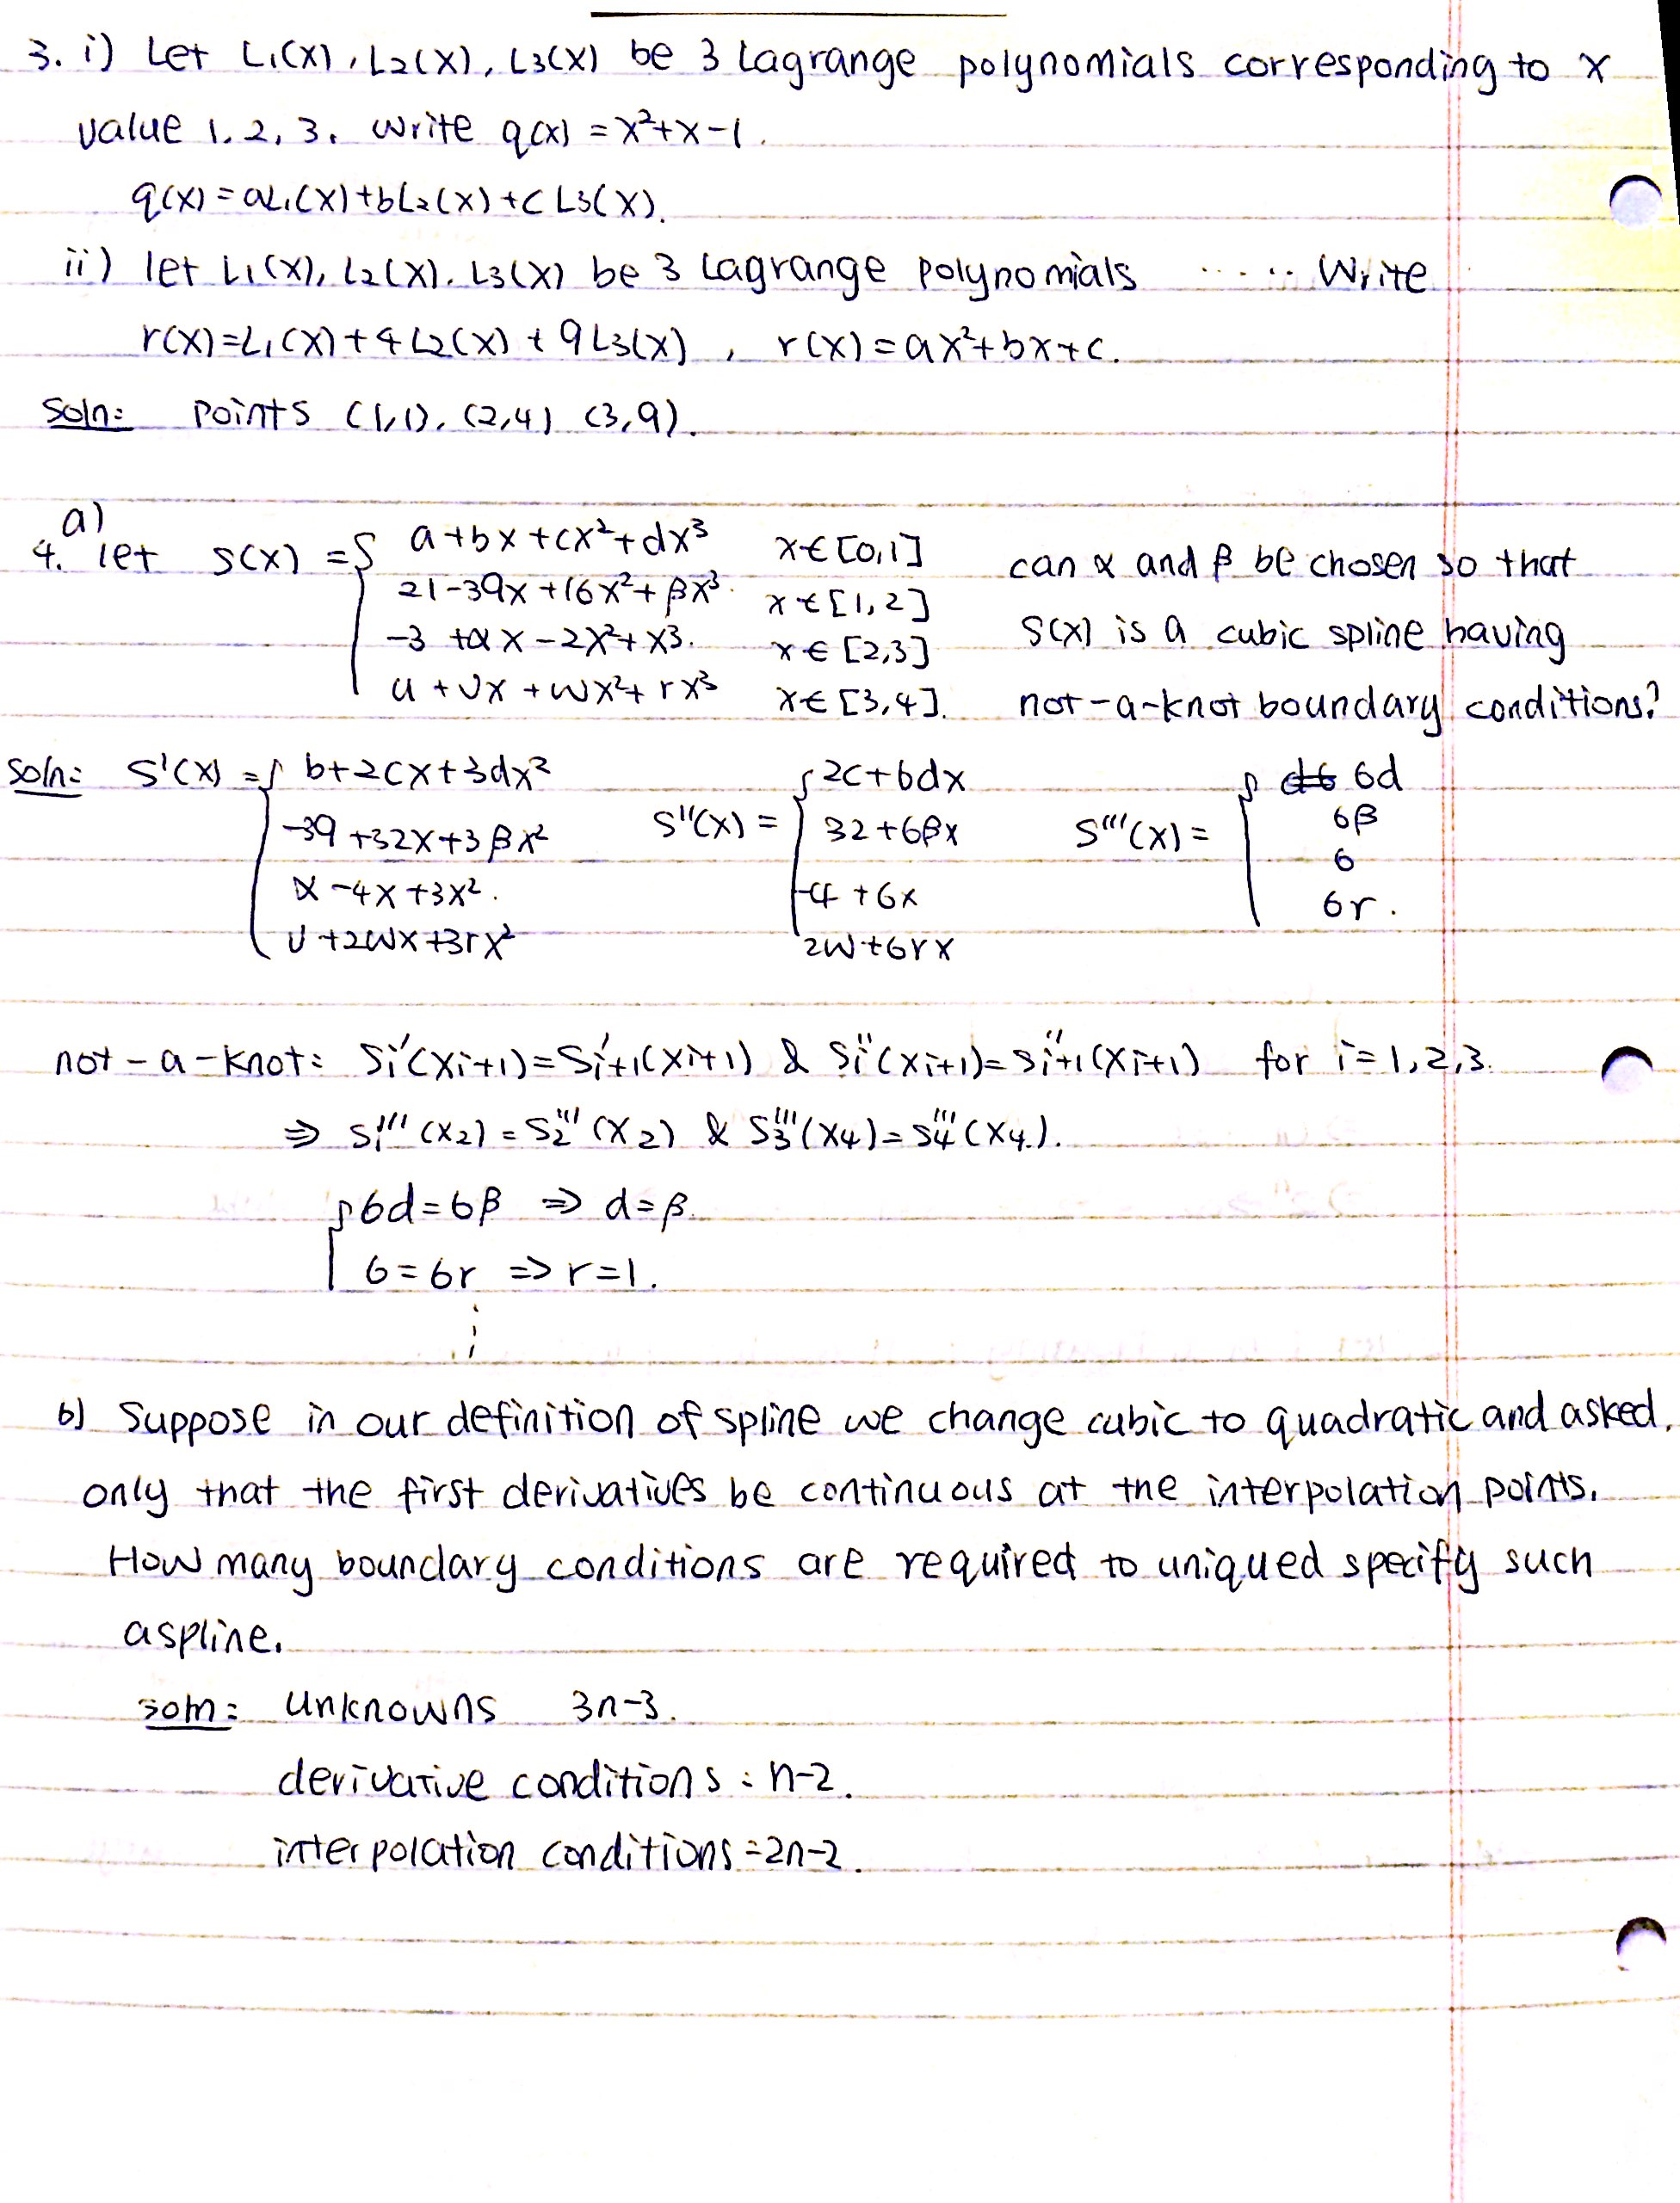 3. i) Let L₁(x), L₂(x), L₃(x) be 3 Lagrange polynomials corresponding to x
value 1, 2, 3. Write q(x) = x²+x-1.
q(x) = aL₁(x)+bL₂(x)+cL₃(x).
ii) let L₁(x), L₂(x). L₃(x) be 3 Lagrange polynomials ...... Write
r(x)=L₁(x)+4L₂(x)+9L₃(x), r(x)=ax²+bx+c.
Soln: points (1,1), (2,4) (3,9).
a)
4. let s(x) = { a+bx+cx²+dx³ x∈[0,1] can α and β be chosen so that
21-39x+16x²+βx³. x∈[1,2]
-3+αx-2x²+x³. x∈[2,3] S(x) is a cubic spline having
u+vx+wx²+rx³ x∈[3,4]. not-a-knot boundary conditions?
Soln: S'(x) = { b+2cx+3dx² S''(x) = { 2c+6dx S'''(x) = { 6d
-39+32x+3βx² 32+6βx 6β
α-4x+3x². -4+6x 6
v+2wx+3rx² 2w+6rx 6r.
not-a-knot: Si'(xi+1)=S'i+1(xi+1) & Si''(xi+1)=S''i+1(xi+1) for i=1,2,3.
⇒ S₁'''(x₂)=S₂'''(x₂) & S₃'''(x₄)=S₄'''(x₄).
{ 6d=6β ⇒ d=β.
6=6r ⇒ r=1.
⋮
b) Suppose in our definition of spline we change cubic to quadratic and asked.
only that the first derivatives be continuous at the interpolation points.
How many boundary conditions are required to uniqued specify such
a spline.
soln: unknowns 3n-3.
derivative conditions: n-2.
interpolation conditions=2n-2.